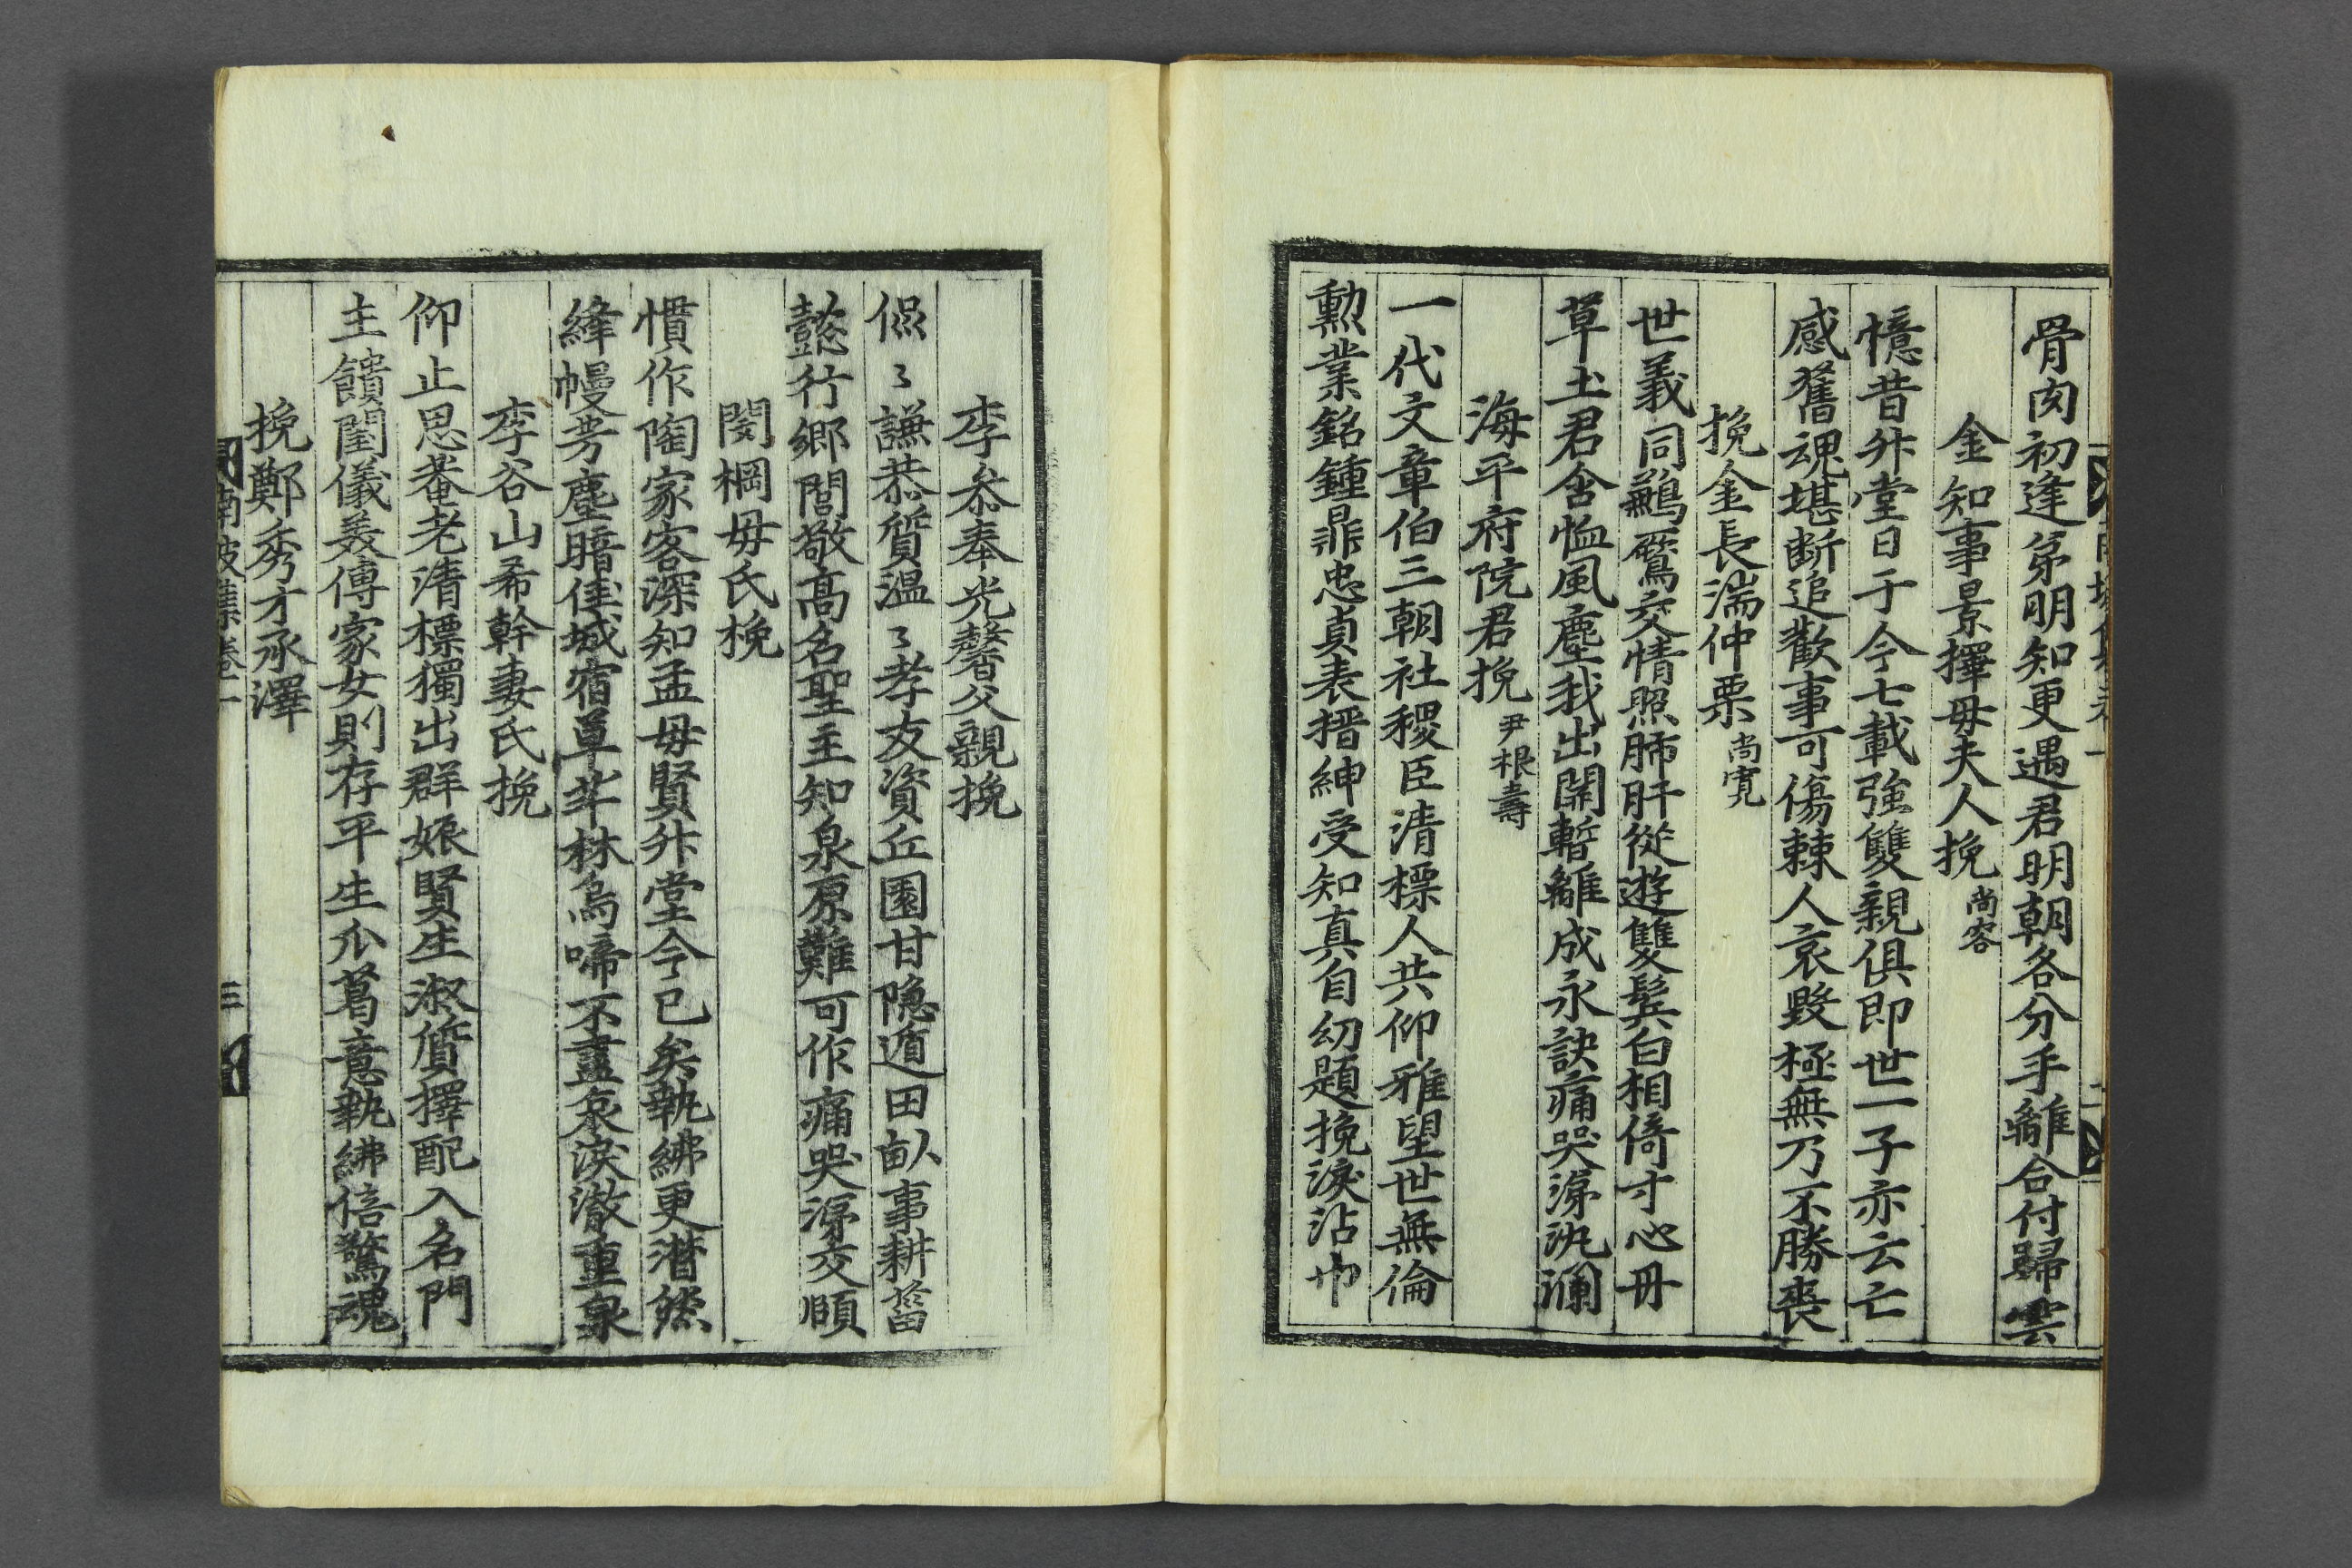 骨肉初逢第明知更遇君明朝各分手離合付歸雲
金知事景擇母夫人挽尚容
憶昔升堂日于今七載強雙親俱即世一子亦云亡
感舊魂堪斷追歡事可傷棘人哀毀極無乃不勝喪
挽金長湍仲栗尚寬
世義同鵜鷪交情照肺肝從遊雙鬂白相倚寸心丹
草土君含恤風塵我出關暫離成永訣痛哭涕汍瀾
海平府院君挽尹根壽
一代文章伯三朝社稷臣清標人共仰雅望世無倫
勲業銘鍾鼎忠貞表搢紳受知真自幼題挽淚沾巾
李叅奉光馨父親挽
偲〻謙恭質温〻孝友資丘園甘隐遁田畝事耕菑
懿行鄉閭敬高名聖主知泉原難可作痛哭涕交頤
閔棡母氏挽
慣作陶家客深知孟母賢升堂今已矣執紼更潸然
絳幔芳塵暗佳城宿草芊林烏啼不盡哀淚澈重泉
李谷山希幹妻氏挽
仰止思菴老清標獨出群娘賢生淑質擇配入名門
主饋閨儀羙傳家女則存平生瓜葛意執紼倍驚魂
挽鄭秀才承澤
南坡集卷一
三